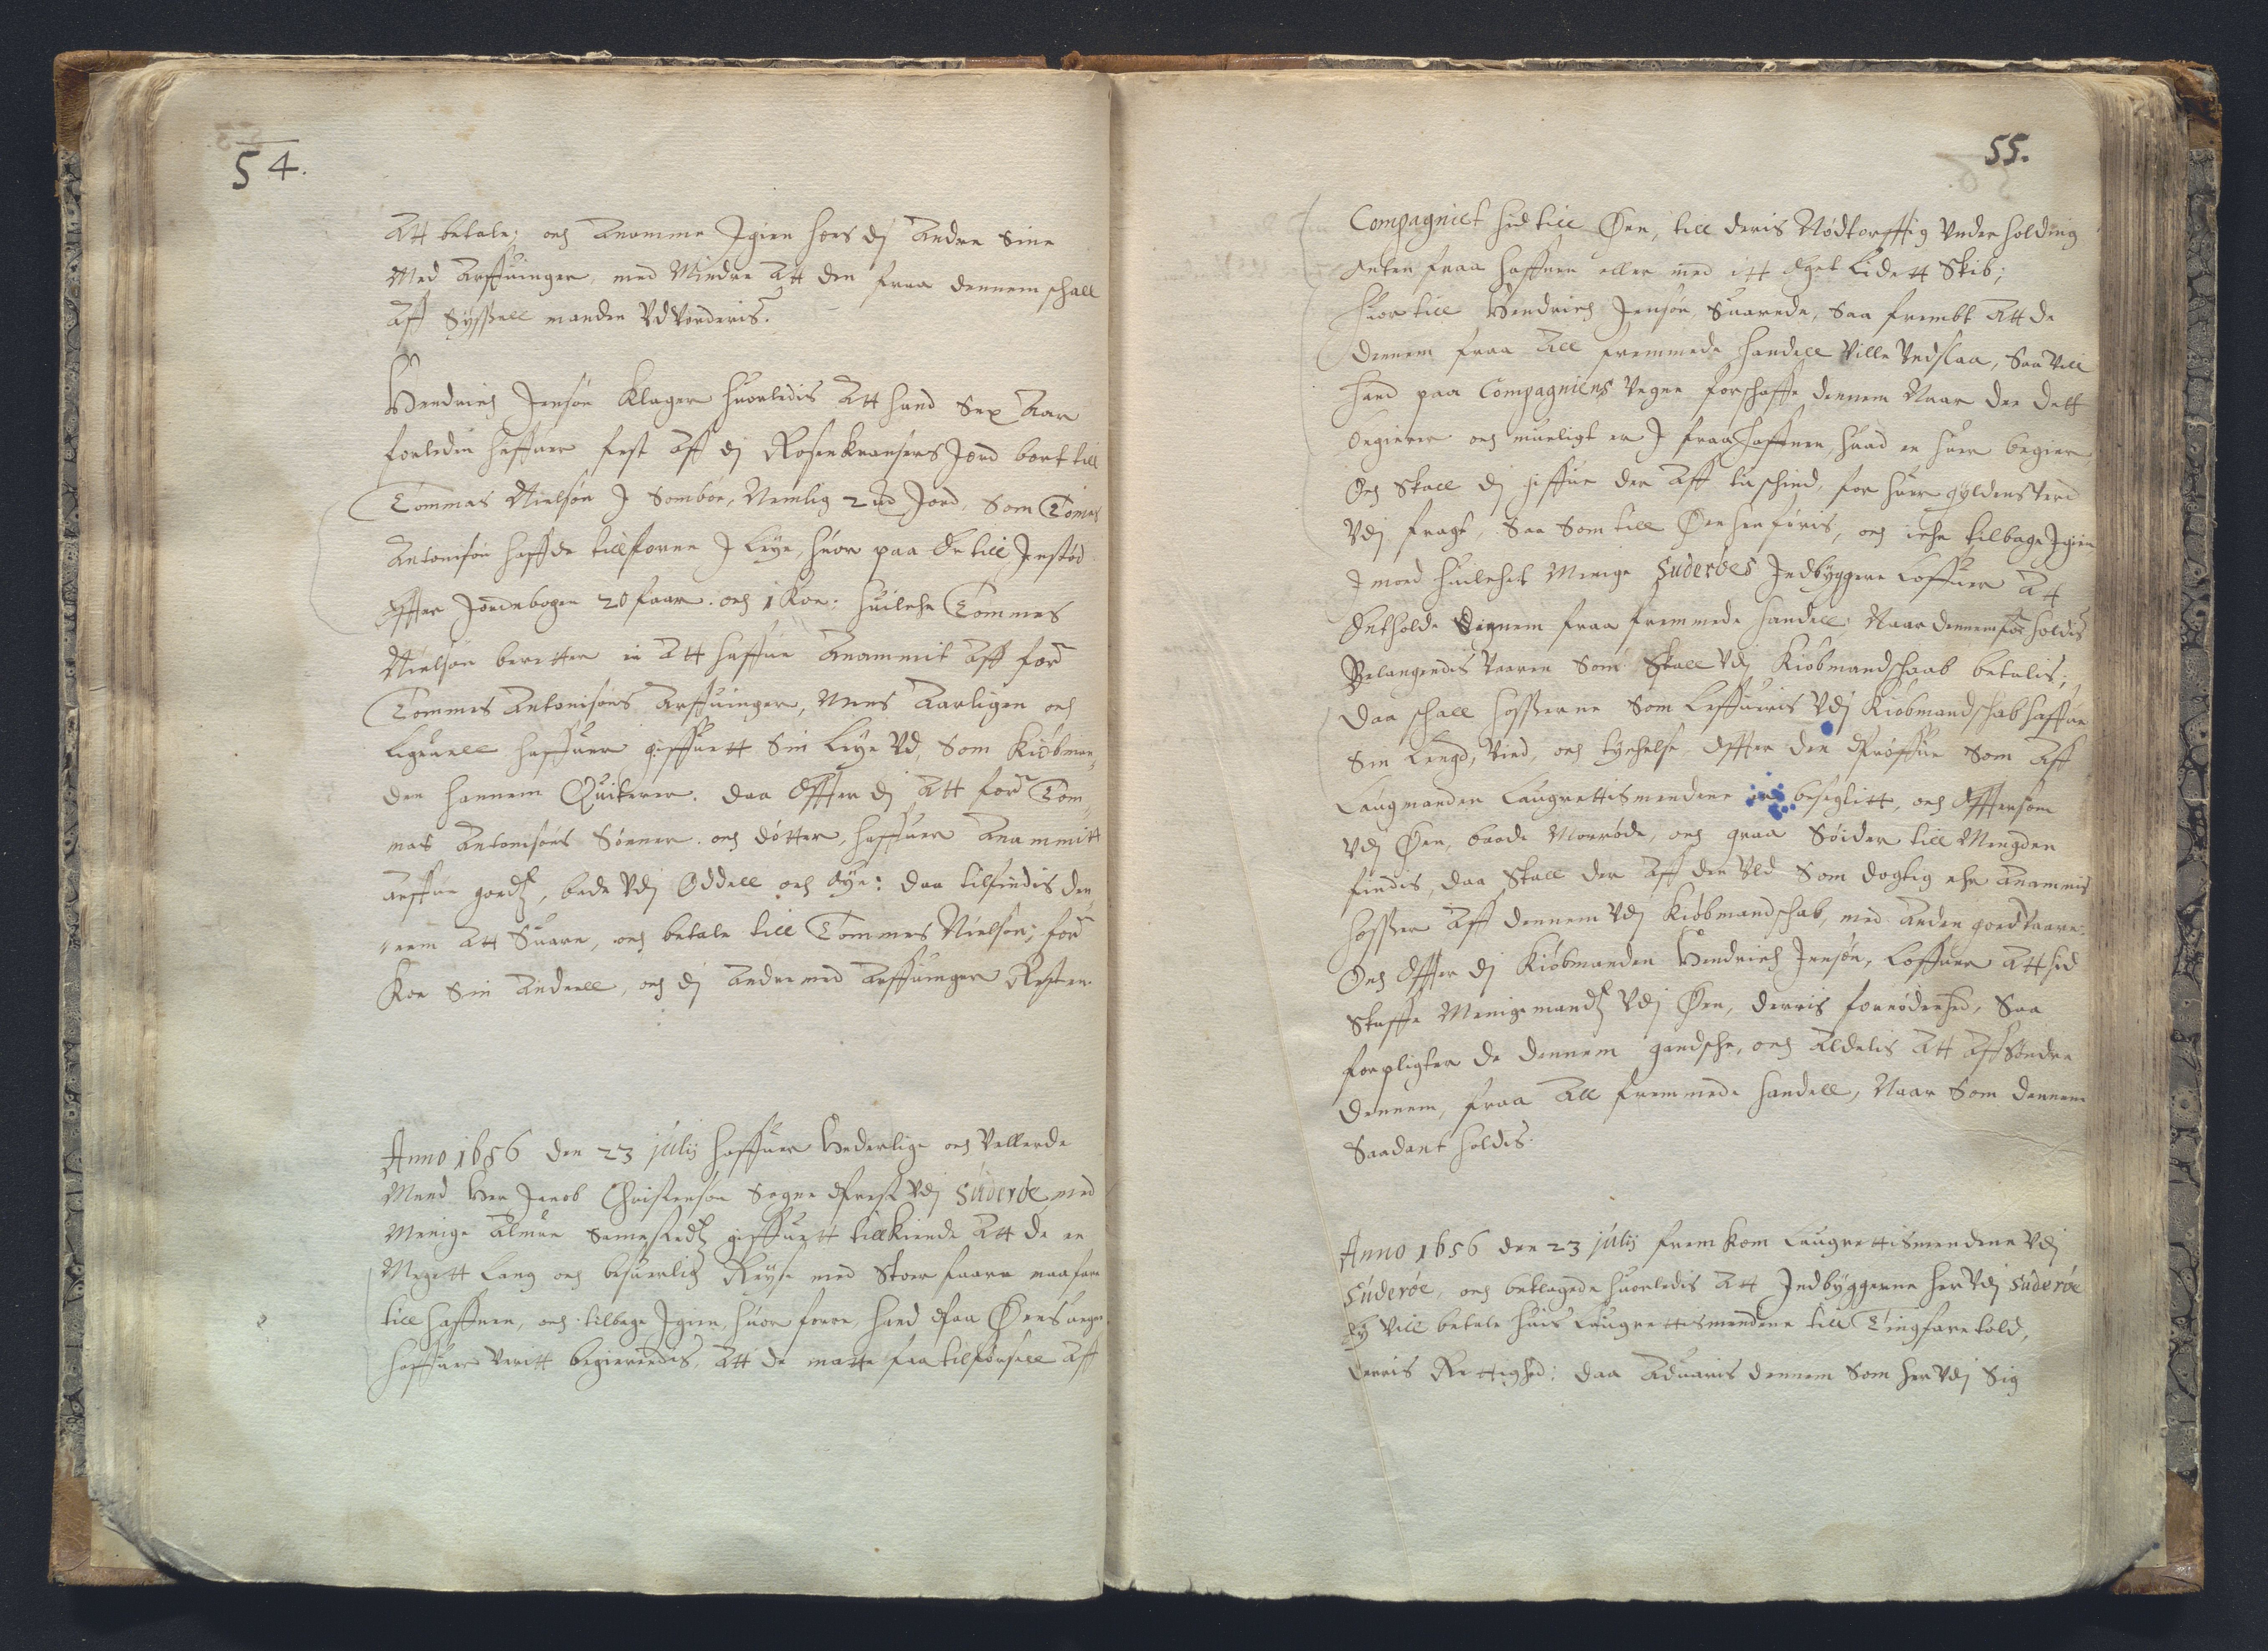 54.
Att betale; och Anamme Igien hoes dj Andre Sine
Med Arffuinger, med Mindre Att den fraa dennem schall
Aff Sysszell manden Vdvorderis.
Hendrich Jensøn Klager huorledis Att hand Sex Aar
forleden haffuer fest Aff dj Rosenkransers Jord bort till
Tommas Nielsøn J Somboe, Nemlig 2 Jord, Som Tomas
Antonisøn haffde tillforne J Leye, huor paa Er till Jnstød
Effter Jordebogen 20 faar. och 1 Koe: huilche Tommes
Nielsøn beretter ei Att haffue Anammit Aff for:
Tommes Antonisøns Arffuinger, Mens Aarligen och
Ligeuell haffuer giffuett Sin Leye Vd, Som Kiøbman,
den hannem Quiterer. daa Effter dj Att for: Tom,
mas Antonisøns Sønner. och døtter, haffuer Anammitt
Arffue goedtz, bode Vdj Oddell och Eye: daa tilfindis den,
nem Att Suare, och betale till Tommes Nielsøn; for:
Koe Sin Andeell, och dj Andre med Arffuinger Resten.
Anno 1656 den 23 julij haffuer Hederlige och Vellerde
Mand Her Jacob Christensøn Sogne Prest Vdj Suderøe, med
Menige Almue Sammestedtz giffuett tilkiende Att de en
Megett Lang och besuerlig Reyse med Stoer faare maa fare
till haffnen, och tilbage Igien, huor forre, hand Paa Øens vegne
haffuer Veritt begierendis, Att de motte faa tilførsell Aff
55.
Compagniet hid till Øen, till deris Nødtorfftig Vnderholding
Enten fraa haffnen eller med itt Eget Lidett Skib;
huortill Hendrich Jensøn Suarede, Saa frembt Att de
dennem fraa All fremmede handell Ville Vndslaa, Saa Vill
hand paa Compagniens Vegne forschaffe dennem Naar der dett
begierer och mueligt er J fraa haffnen, huad en huer begierer
Och Skall dj giffue der Aff tu schind, for huer gyldens Verd
Vdj fragt, Saa Som till Øen henføris, och iche tilbage Igien
J mod huilchet Menige Suderøes Indbyggere Loffuer At
Entholde Dennem fraa fremmede handell; Naar dennem for: holdis
Belangendis Vaaren Som Skall Vdj Kiøbmandschaab betalis;
daa schall hosserne Som Leffueris Vdj Kiøbmandschab haffue
Sin Lengd, Vied, och tychelse Effter den Prøffue Som Aff
Laugmanden Laugrettismendene er besiglitt, och Effter som
Vdj Øen, baade Morrøde, och graa Søider till Mengden
findis, daa Skall der Aff den Vld Som dogtig ehr Anammis
hosser Aff dennem Vdj Kiøbmandschab, med Anden goed Vaare.
Och Effter dj Kiøbmanden Hendrich Jensøn, Loffuer Att hid
Skaffe Menigemandtz Vdj Øen, derris fornødenhed, Saa
forpligter de dennem gandsche, och Aldelis Att Affsøndre
dennem, fraa All fremmede handell, Naar Som dennem
Saadant holdes.
Anno 1656 den 23 julij frem kom Laugrettismendene Vdj
Suderøe, och beklagede huorledis Att Indbyggerne her Vdj Suderøe
ey Vill betale huis Laugrettismendene till Tingfaretold,
derris Rettighed: daa Aduaris dennem Som her Vdj Sig